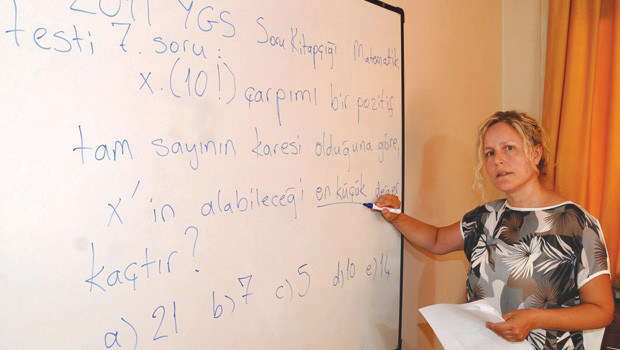 2011 YGS Soru Kitapçığı Matematik
testi 7. soru:
x.(10!) çarpımı bir pozitif
tam sayının karesi olduğuna göre,
x'in alabileceği en küçük değer
kaçtır?
a) 21 b) 7 c) 5 d) 10 e) 14